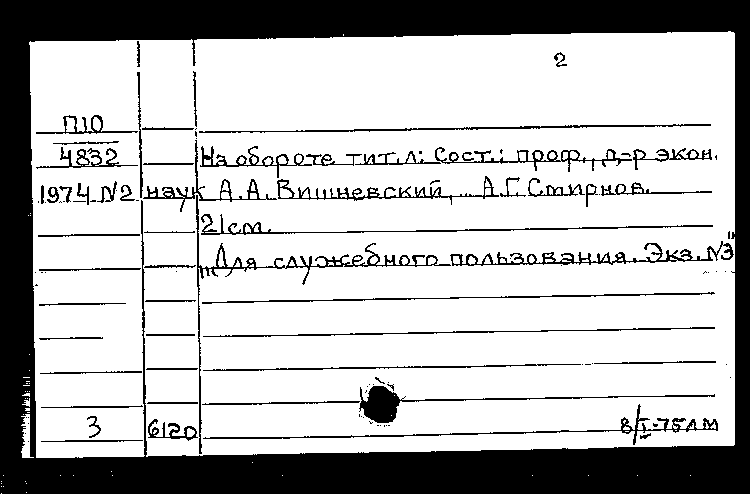 2
П10
4832 На обороте тит.л: Сост.: проф., д-р экон.
1974 №2 наук А.А. Вишневский, ... А.Г. Смирнов.
21см.
"Для служебного пользования. Экз. №3"
3 6120 8/I-75 ЛМ